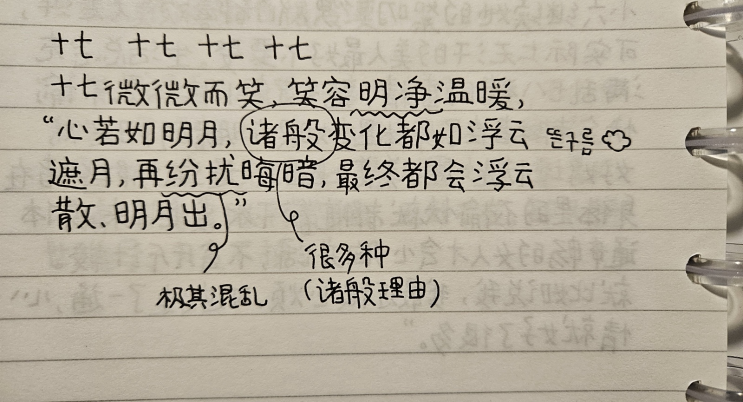 十七 十七 十七 十七
十七微微而笑,笑容明净温暖,
“心若如明月,诸般变化都如浮云 뜬구름
遮月,再纷扰晦暗,最终都会浮云
散、明月出。”
很多种
极其混乱 (诸般理由)